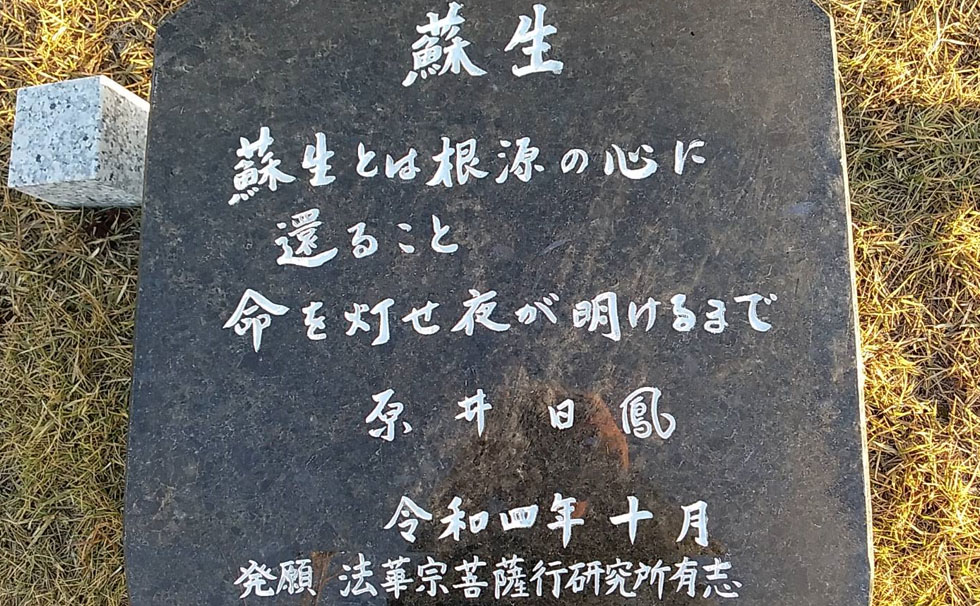 蘇生
蘇生とは根源の心に
還ること
命を灯せ夜が明けるまで
原井日鳳
令和四年十月
発願 法華宗菩薩行研究所有志